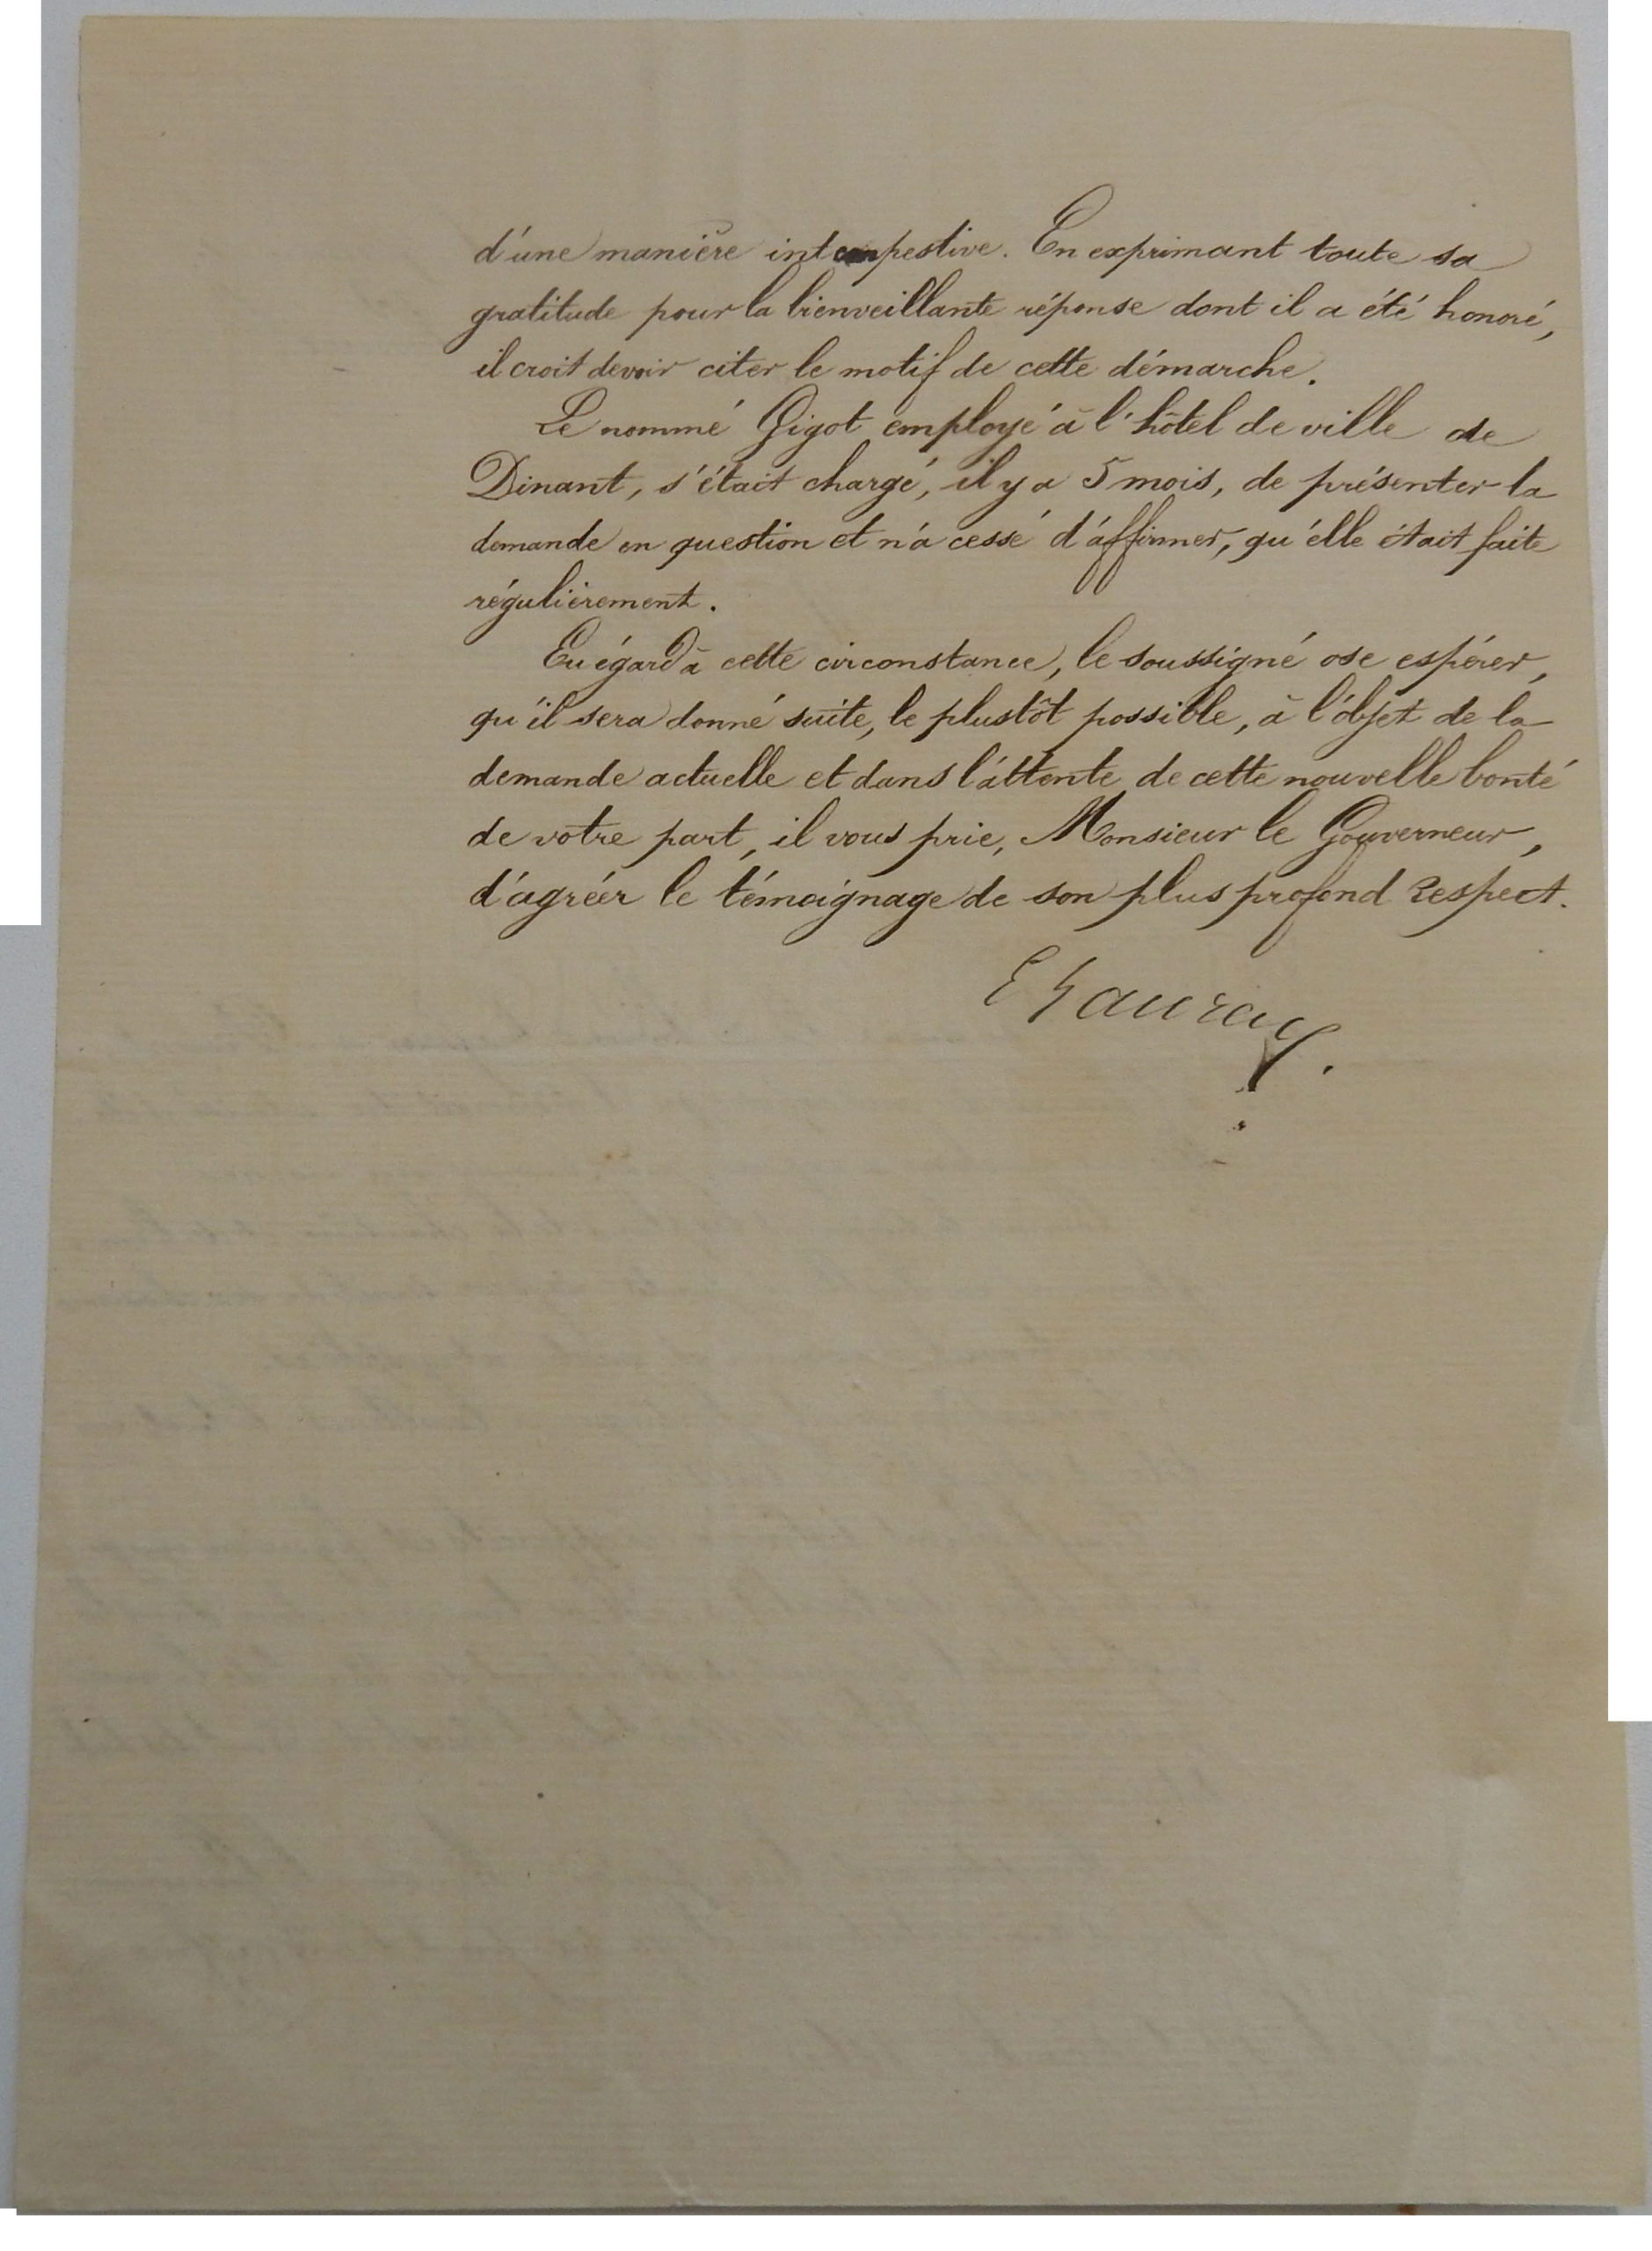 d'une manière intempestive. En exprimant toute sa
gratitude pour la bienveillante réponse dont il a été honoré,
il croit devoir citer le motif de cette démarche.
Le nommé Gigot employé à l'hôtel de ville de
Dinant, s'était chargé, il y a 5 mois, de présenter la
demande en question et n'a cessé d'affirmer, qu'elle était faite
régulièrement.
Eu égard à cette circonstance, le soussigné ose espérer,
qu'il sera donné suite, le plustôt possible, à l'objet de la
demande actuelle et dans l'attente de cette nouvelle bonté
de votre part, il vous prie, Monsieur le Gouverneur,
d'agréer le témoignage de son plus profond Respect.